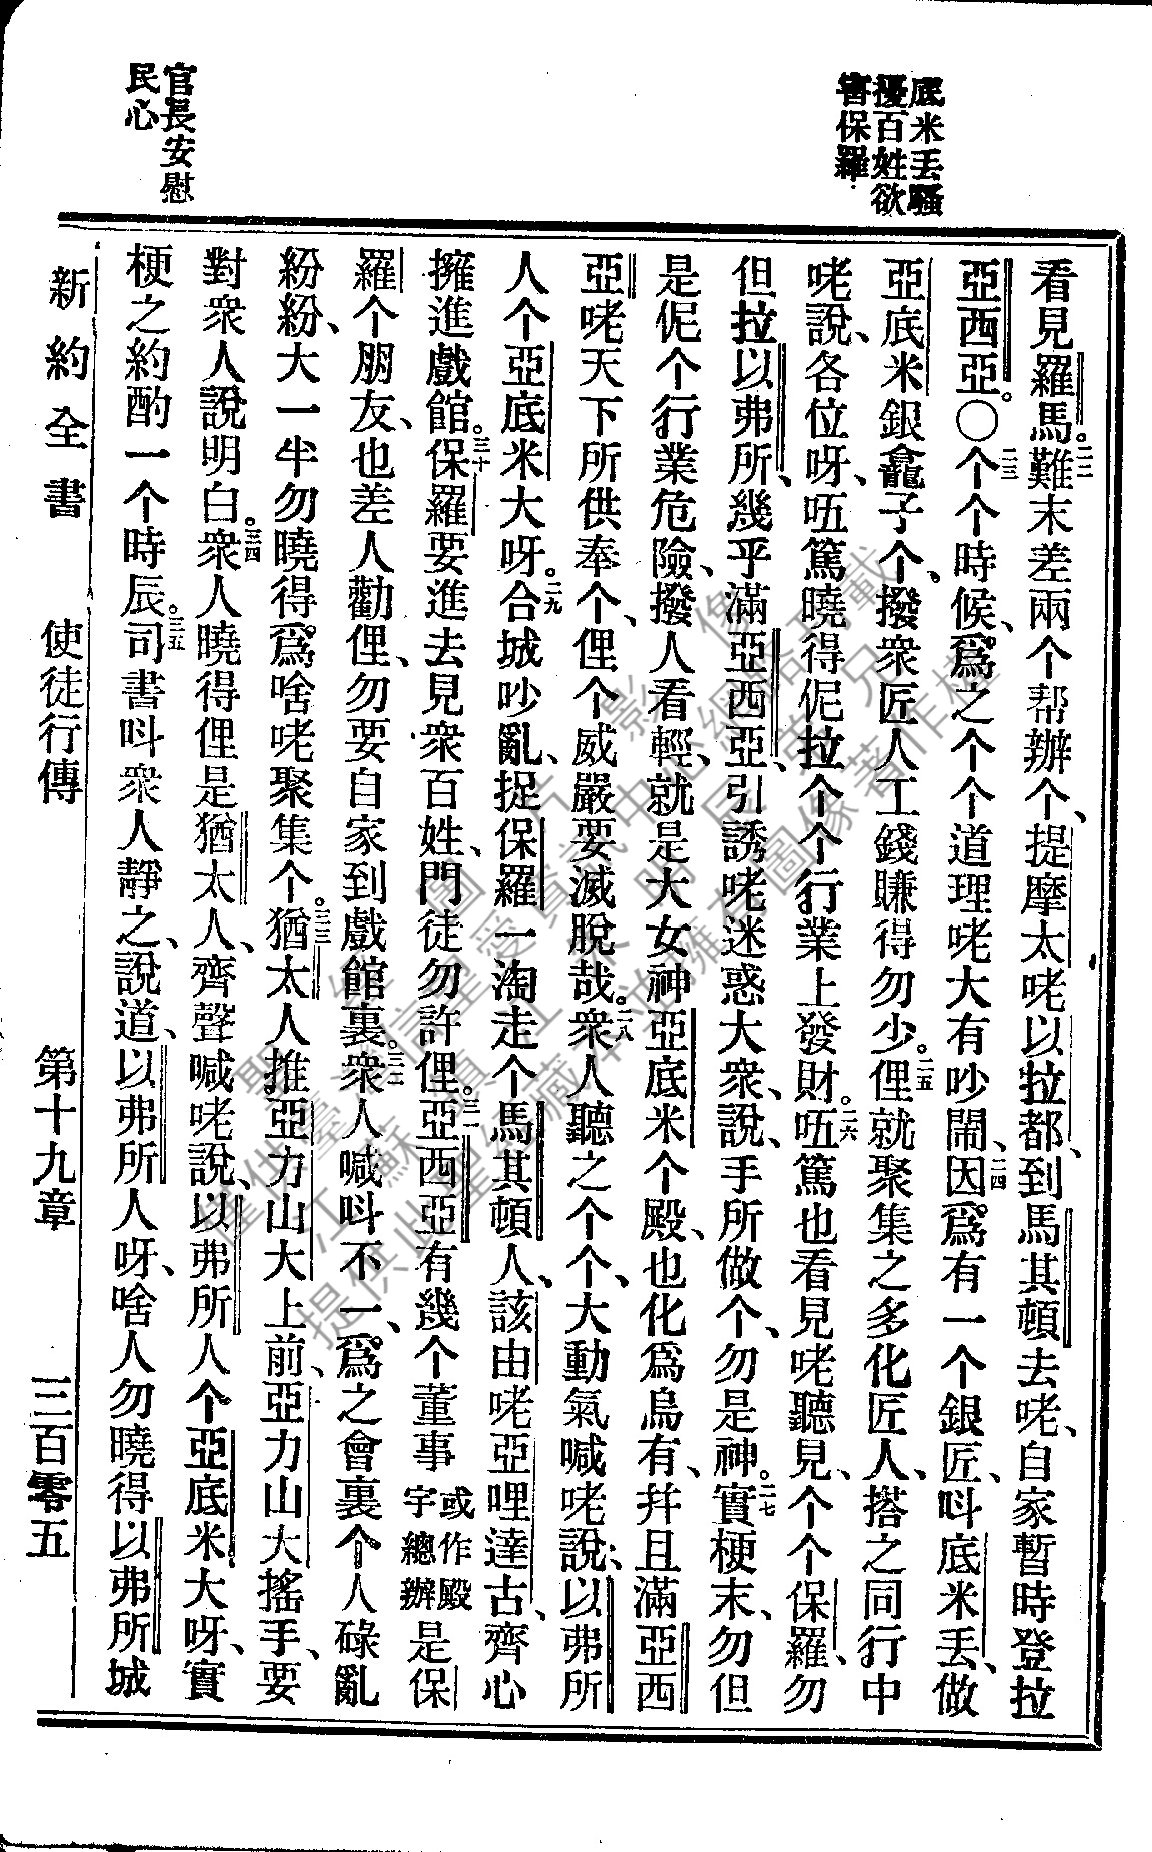 底米丟騷
擾百姓欲
害保羅
官長安慰
民心
看見羅馬。二二難末差兩个帮辦个、提摩太咾以拉都、到馬其頓去咾、自家暫時登拉
亞西亞。〇二三个个時候、爲之个个道理咾大有吵鬧、二四因爲有一个銀匠、呌底米丟、做
亞底米銀龕子个、撥衆匠人工錢賺得勿少。二五俚就聚集之多化匠人、搭之同行中
咾說、各位呀、伍篤曉得伲拉个个行業上發財。二六伍篤也看見咾聽見、个个保羅、勿
但拉以弗所、幾乎滿亞西亞、引誘咾迷惑大衆、說、手所做个、勿是神。二七實梗末、勿但
是伲个行業危險、撥人看輕、就是大女神亞底米个殿、也化爲烏有、幷且滿亞西
亞咾天下所供奉个、俚个威嚴要滅脫哉。二八衆人聽之个个、大動氣喊咾說、以弗所
人个亞底米大呀。二九合城吵亂、捉保羅一淘走个馬其頓人、該由咾亞哩達古、齊心
擁進戲館。三十保羅要進去見衆百姓、門徒勿許俚。三一亞西亞有幾个董事或作殿宇總辦是保
羅个朋友、也差人勸俚、勿要自家到戲館裏。三二衆人喊呌不一、爲之會裏个人碌亂
紛紛、大一半勿曉得爲啥咾聚集个。三三猶太人推亞力山大上前、亞力山大搖手、要
對衆人說明白。三四衆人曉得俚是猶太人、齊聲喊咾說、以弗所人个亞底米大呀、實
梗之約酌一个時辰。三五司書呌衆人靜之、說道、以弗所人呀、啥人勿曉得以弗所城
新約全書　使徒行傳　第十九章　三百零五
聖經圖片影像
僅供臺灣信望愛資訊中心網站刊載
江蘇鎮江
提供此聖經藏本